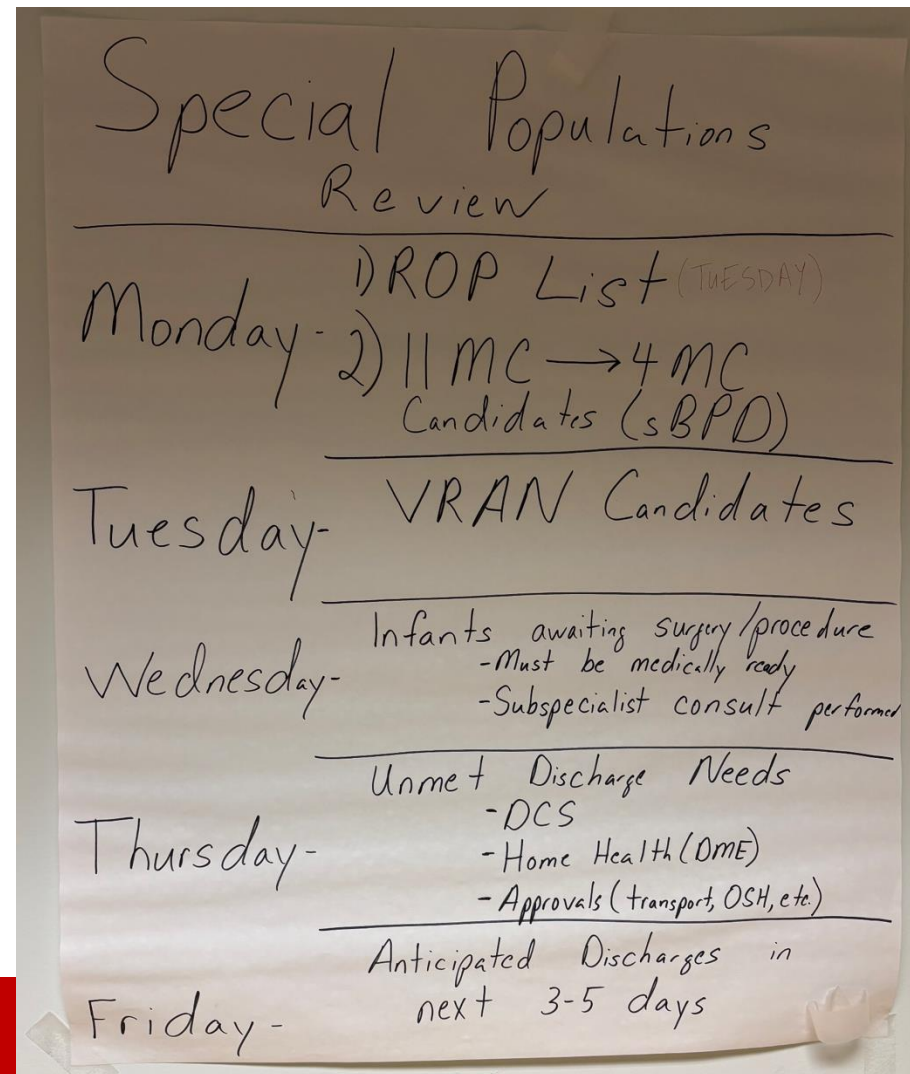 Special Populations
Review
Monday- 1) ROP List (TUESDAY)
2) 11 MC → 4 MC
Candidates (sBPD)
Tuesday- VRAN Candidates
Wednesday- Infants awaiting surgery/procedure
-Must be medically ready
-Subspecialist consult performed
Thursday- Unmet Discharge Needs
-DCS
-Home Health (DME)
-Approvals (transport, OSH, etc.)
Friday- Anticipated Discharges in
next 3-5 days